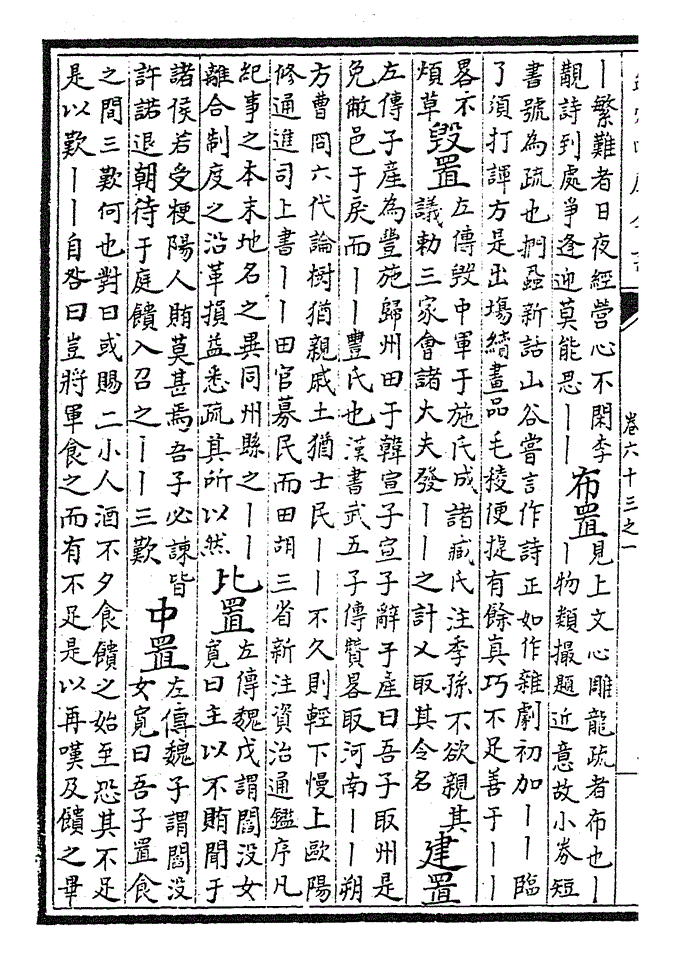 卷六十三之一
丨繁難者日夜經營心不閑李
覯詩到處爭逢迎莫能忍丨丨
布置
見上文心雕龍疏者布也丨
丨物類撮題近意故小券短
書號為疏也捫蝨新話山谷嘗言作詩正如作雜劇初加丨丨臨
了須打諢方是出塲繢畫品毛稜便捷有餘真巧不足善于丨丨
畧不
煩草
毀置
左傳毀中軍于施氏成諸臧氏注季孫不欲親其
議勅三家會諸大夫發丨丨之計乂取其令名
建置
左傳子產為豐施歸州田于韓宣子宣子辭子產曰吾子取州是
免敝邑于戾而丨丨豐氏也漢書武五子傳贊畧取河南丨丨朔
方曹冏六代論樹猶親戚土猶士民丨丨不久則輕下慢上歐陽
修通進司上書丨丨田官募民而田胡三省新注資治通鑑序凡
紀事之本末地名之異同州縣之丨丨
離合制度之沿革損益悉疏其所以然
比置
左傳魏戊謂閻没女
寛曰主以不賄聞于
諸侯若受梗陽人賄莫甚焉吾子必諫皆
許諾退朝待于庭饋入召之丨丨三歎
中置
左傳魏子謂閻没
女寛曰吾子置食
之間三歎何也對曰或賜二小人酒不夕食饋之始至恐其不足
是以歎丨丨自咎曰豈將軍食之而有不足是以再嘆及饋之畢